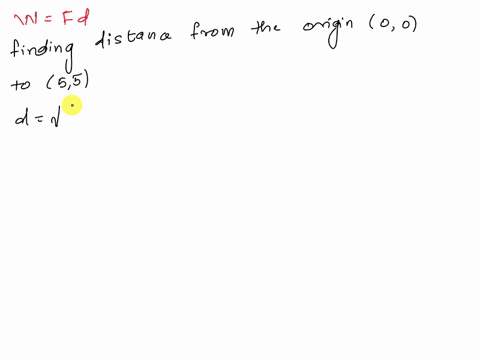 W = Fd
finding distance from the origin (0,0)
to (5,5)
d = √